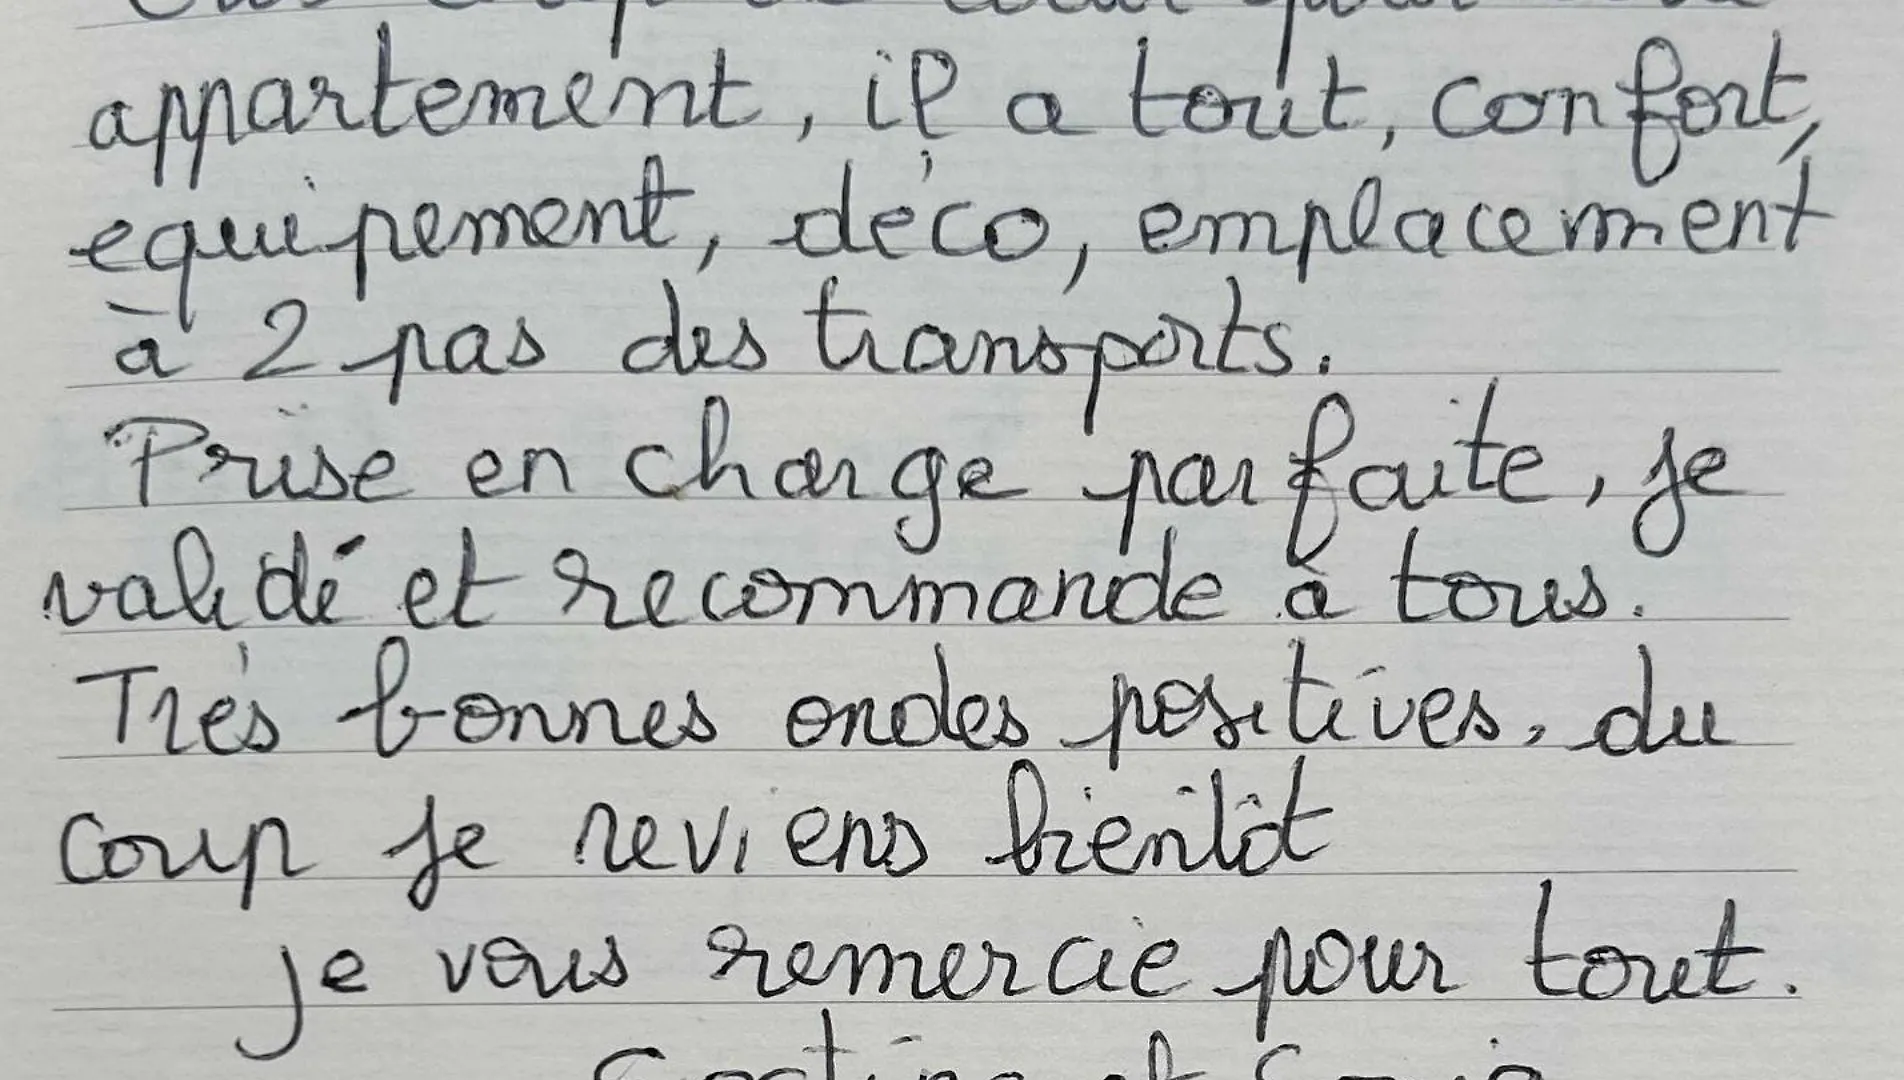 appartement, il a tout, confort,
equipement, déco, emplacement
à 2 pas des transports.
Prise en charge parfaite, je
validé et recommande à tous.
Très bonnes ondes positives, du
coup je reviens bientôt
je vous remercie pour tout.